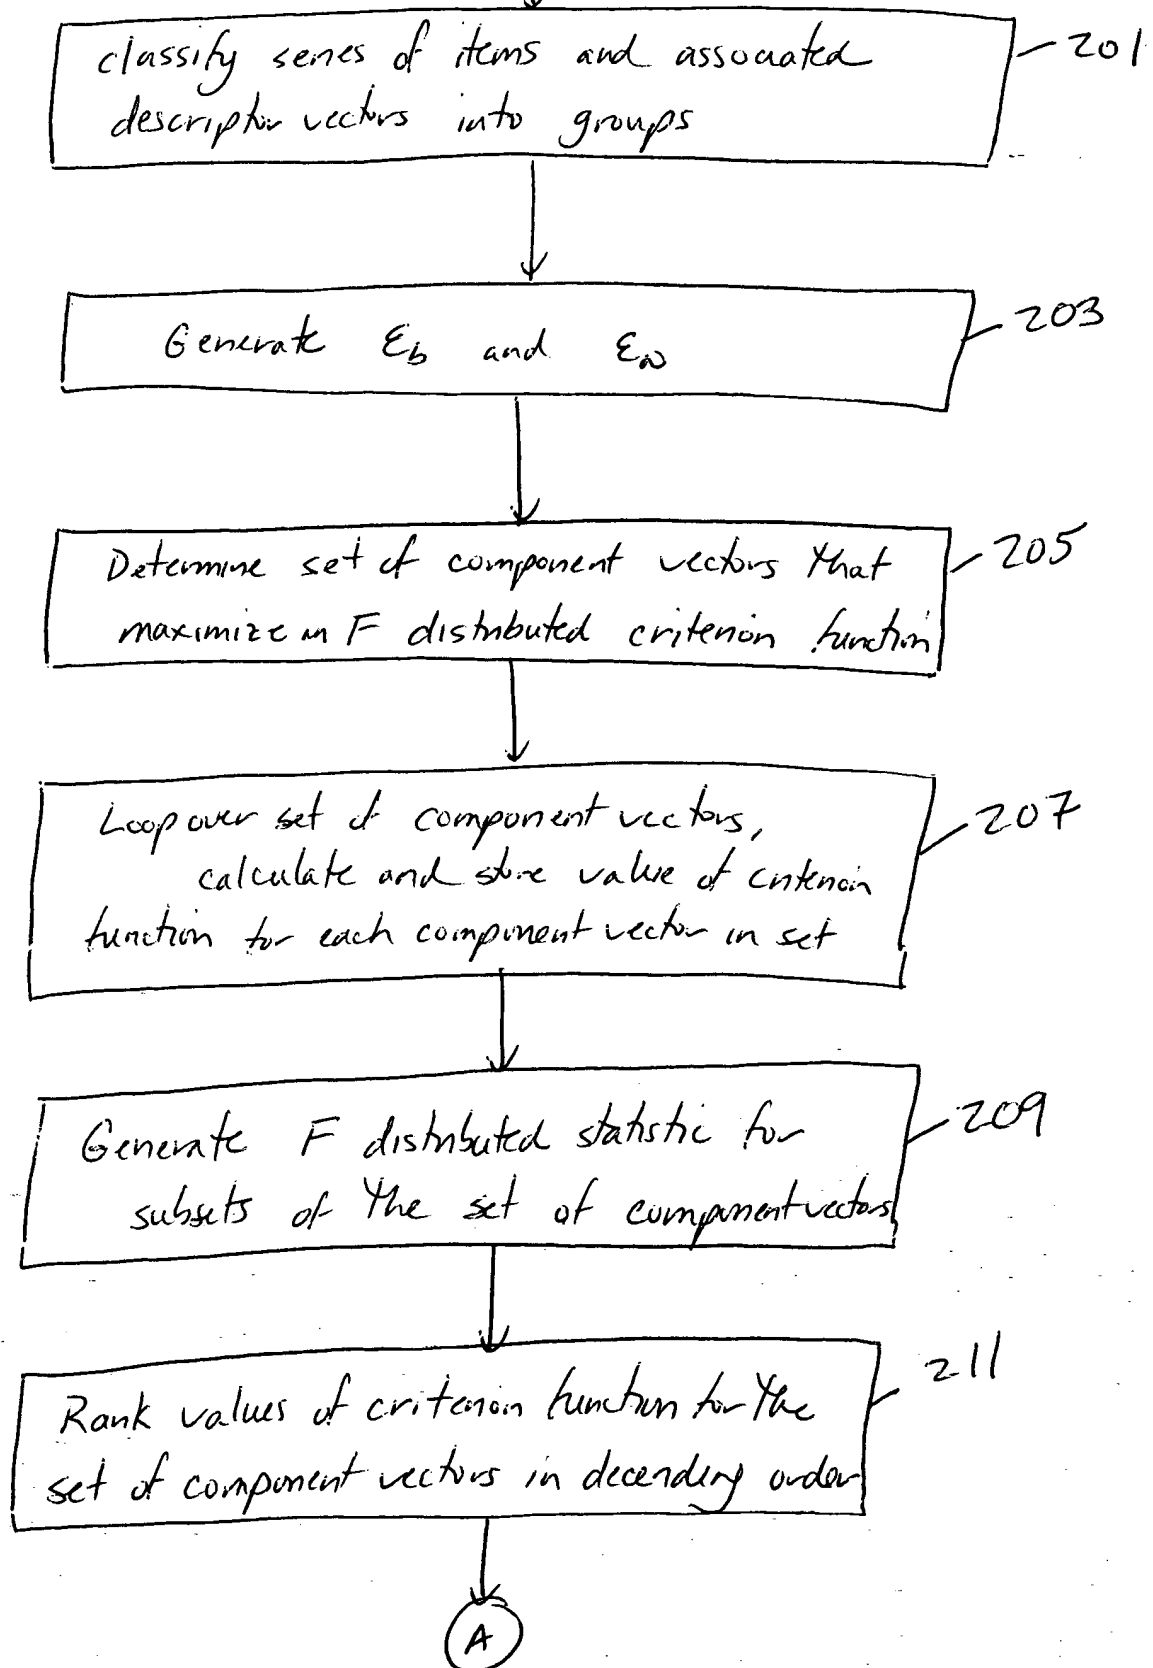 classify series of items and associated
201
descriptor vectors into groups
Generate Ɛb and Ɛw
203
Determine set of component vectors that
205
maximize an F distributed criterion function
Loop over set of component vectors,
207
calculate and store value of criterion
function for each component vector in set
Generate F distributed statistic for
209
subsets of the set of component vectors
Rank values of criterion function for the
211
set of component vectors in decending order
A